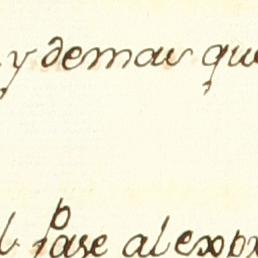 y demas que
pase al expo